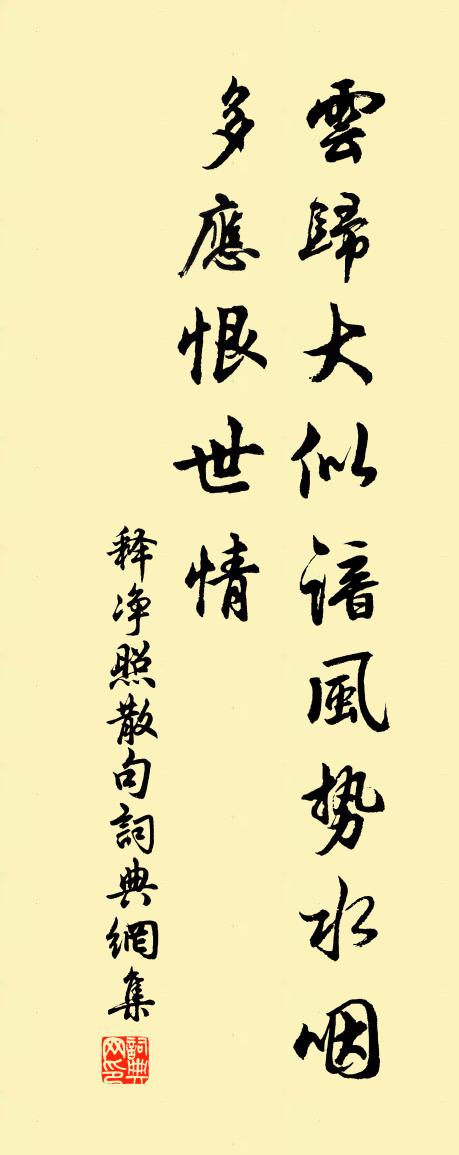 雲歸大似諳風勢水咽
多應恨世情
释净照散句詞典網集
詞典网印